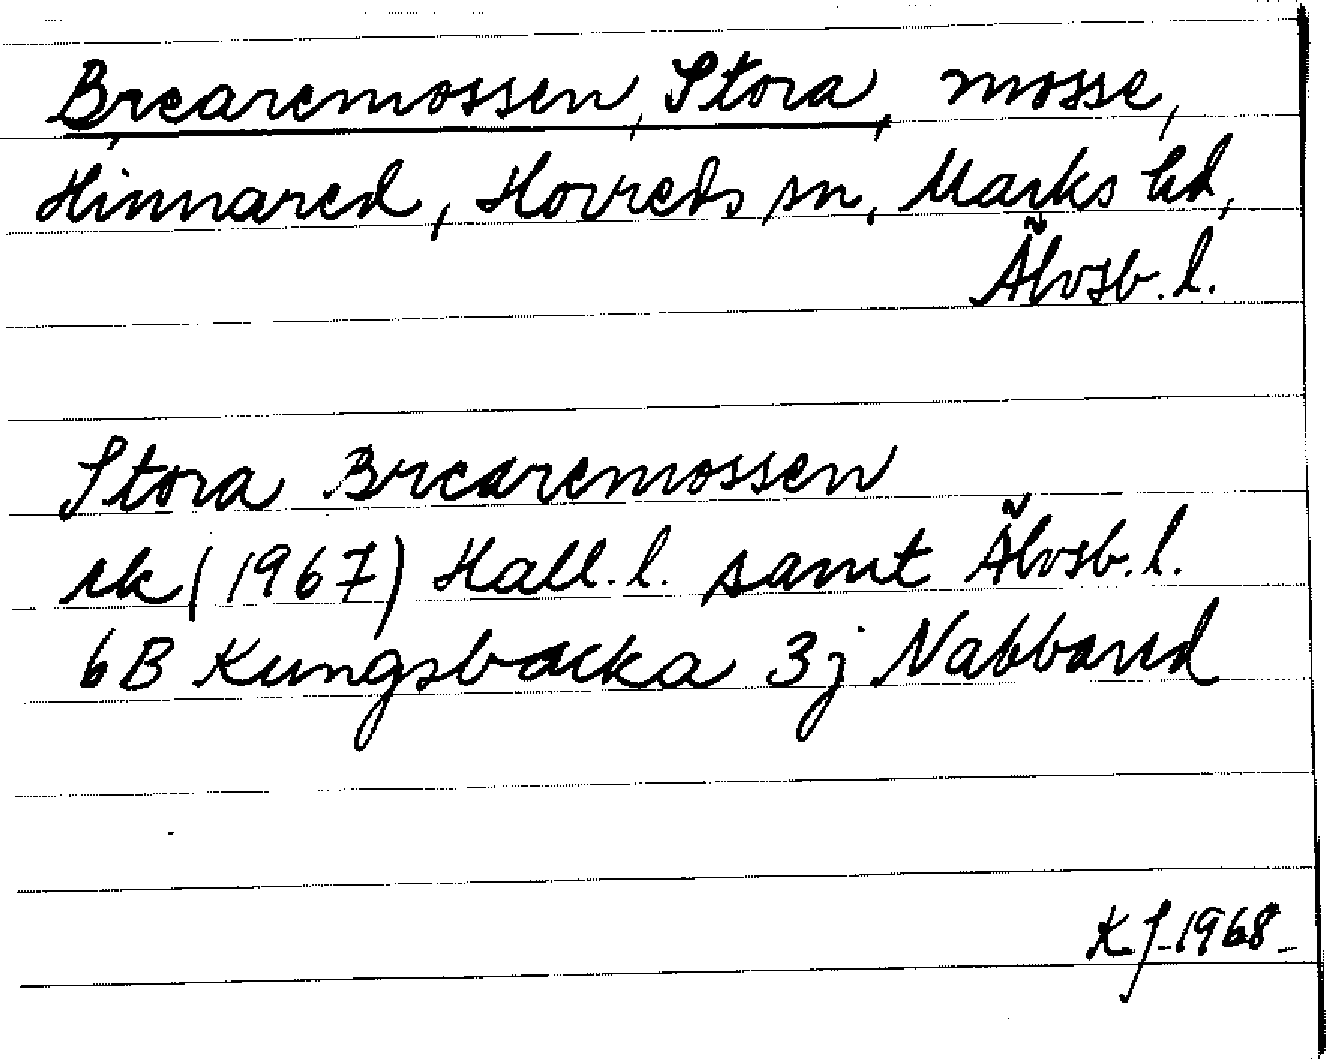 Brearemossen, Stora, mosse,
Hinnared, Horreds sn, Marks hd,
Älvsb. l.
Stora Brearemossen
ek (1967) Hall. l. samt Älvsb. l.
6B Kungsbacka 3j Nabbared
KJ 1968